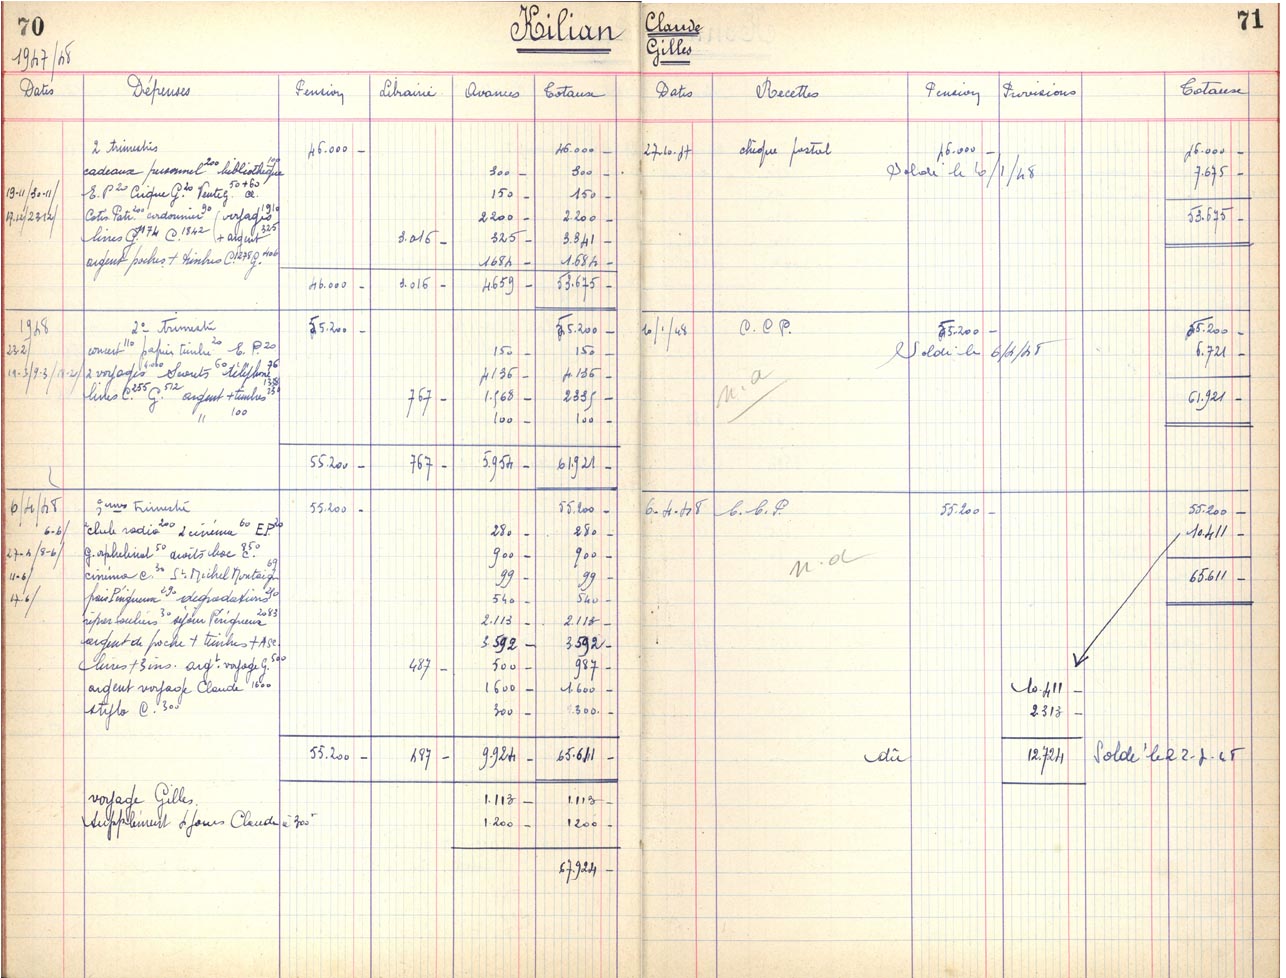 70
Kilian
Claude
Gilles
71
1947/48
Dates Dépenses Pension Librairie Avances Totaux
Dates Recettes Pension Provisions Totaux
2 trimestres 46.000 – 46.000 –
27.10.47 chèque postal 46.000 – 46.000 –
cadeaux personnel 200 bibliothèque 100 300 – 300 –
Soldé le 10/1/48 7.675 –
19-11/30-11/ E.P 20 Cirque G. 20 Vente G. 50+60 C. 150 – 150 –
17.12/23-12/ Cotis. Patr. 200 cordonnier 90 voyages 1910 2200 – 2.200 –
53.675 –
livres G. 1174 C. 1842 + argent 325 3.016 – 325 – 3.341 –
argent poches + timbres C. 1278 G. 406 1684 – 1.684 –
46.000 – 3.016 – 4659 – 53.675 –
1948 2e trimestre 55.200 – 55.200 –
10/1/48 C.C.P. 55.200 – 55.200 –
23-2/ concert 110 papier timbré 20 E.P. 20 150 – 150 –
Soldé le 6/4/48 6.721 –
2 voyages 4000 Secrets 60 téléphone 76 4136 – 4.136 –
livres C. 255 G. 512 argent + timbres 767 – 1.568 – 2335 –
n.a
61.921 –
" 100 100 – 100 –
55.200 – 767 – 5.954 – 61.921 –
6/4/48 3ème trimestre 55.200 – 55.200 –
6-4-48 C.C.P. 55.200 – 55.200 –
6-6/ club radio 200 2 cinéma 60 E.P. 20 280 – 280 –
10.411 –
27-4/8-6/ G. orphelinat 50 droits bac C. 850 900 – 900 –
n.a
11-6/ cinéma C. 30 St. Michel Montaig 69 99 – 99 –
65.611 –
17-6/ Périgueux 290 dégradations 540 – 540 –
répar. souliers 30 séjour Périgueux 2083 2.113 – 2.113 –
argent de poche + timbres + Ass. 3.592 – 3.592 –
livres + 3 ins. argt. voyage G. 500 487 – 500 – 987 –
argent voyage Claude 1600 1600 – 1.600 –
10.411 –
stylo C. 300 300 – 300 –
2.313 –
55.200 – 487 – 9.924 – 65.611 –
dû 12.724 – Soldé le 22-7-48
voyage Gilles. 1.113 – 1.113 –
supplément 4 jours Claude à 300 1.200 – 1200 –
67.924 –